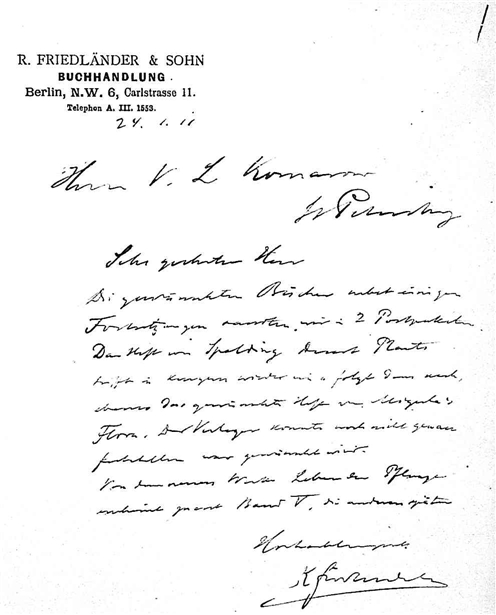 R. FRIEDLÄNDER & SOHN
BUCHHANDLUNG.
Berlin, N.W. 6, Carlstrasse 11.
Telephon A. III. 1553.
24. 1. 11
Herrn V. L. Komarow
St Petersburg
Sehr geehrter Herr
Die gewünschten Bücher nebst einigen
Fortsetzungen sandten wir in 2 Postpaketen.
Das Heft von Spalding Desert Plants
trifft in kurzem wieder ein u. folgt dann nach,
ebenso das gewünschte Heft von Migula's
Flora. Der Verleger konnte noch nicht genau
feststellen was gewünscht wird.
Von dem neuen Werke Leben der Pflanze
erscheint zuerst Band V, die anderen später
Hochachtungsvoll